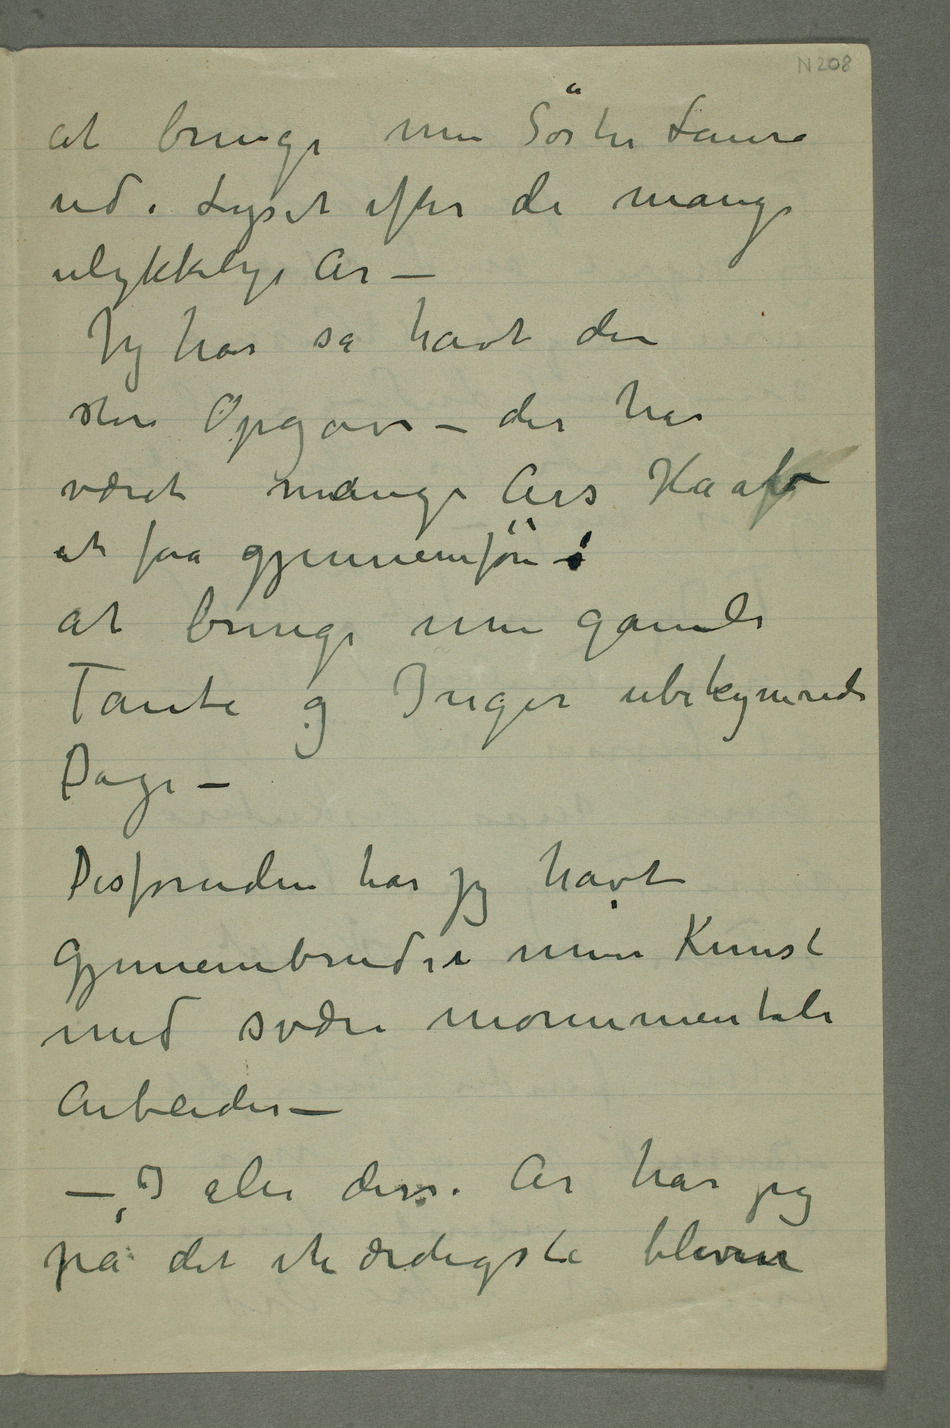 N 208
at bringe min Söster Laura
ud i Lyset efter de mange
ulykkelige År –
Jeg har så havt den
store Opgave – der har
været mange Års Haab
at faa gjennemföre :
at bringe min gamle
Tante og Inger ubekymrede
Dage –
Desforuden har jeg havt
Gjennembrud i min Kunst
med svære monumentale
Arbeider –
– I alle disse År har jeg
på det ihærdigste bleven